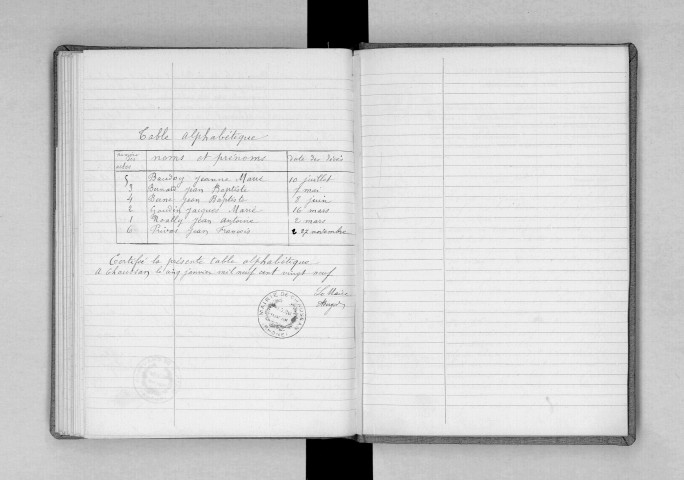 Table alphabétique
numéros des actes noms et prénoms date des décès
5 Baudoy Jeanne Marie 10 juillet
3 Jean Baptiste 7 mai
4 Jean Baptiste 8 juin
2 Gaudin Jacques Marié 16 mars
1 Jean Antoine 2 mars
6 Privas Jean François 27 novembre
Certifié la présente table alphabétique
A Chaussan le cinq janvier mil neuf cent vingt neuf
Le Maire
MAIRIE DE CHAUSSAN